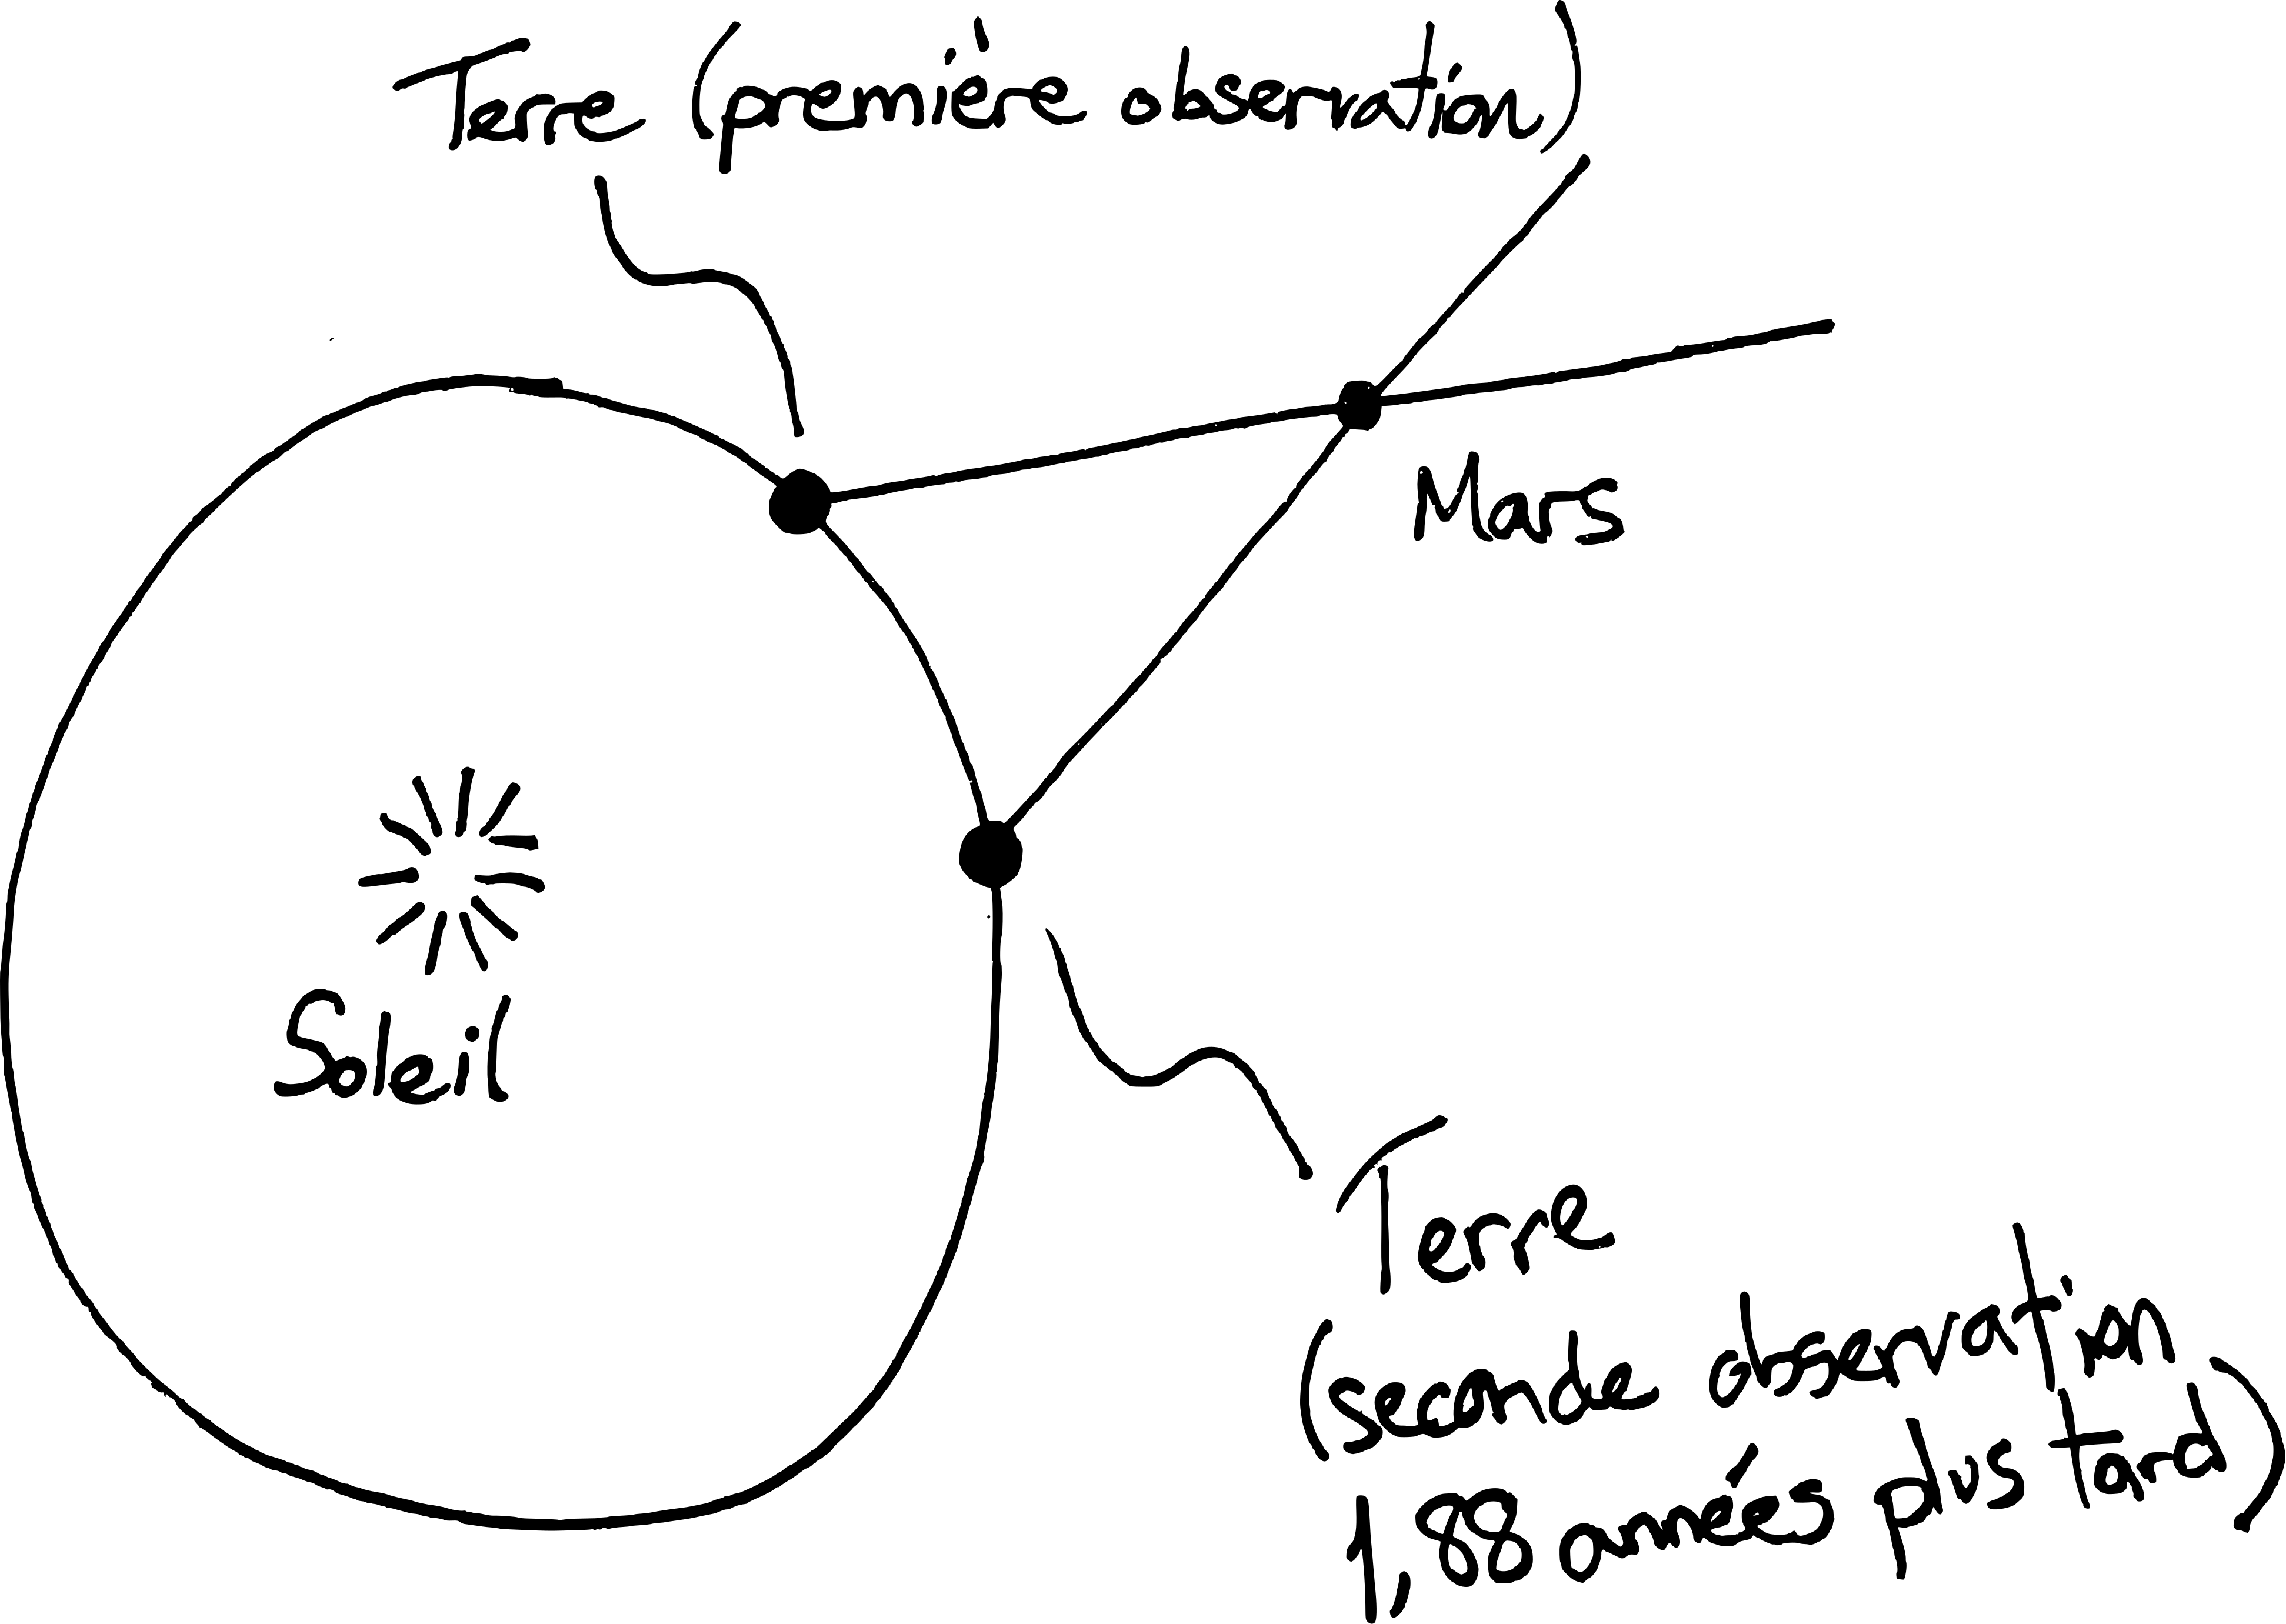 Terre (première observation)
Mars
Soleil
Terre
(seconde observation
1,88 années plus tard)